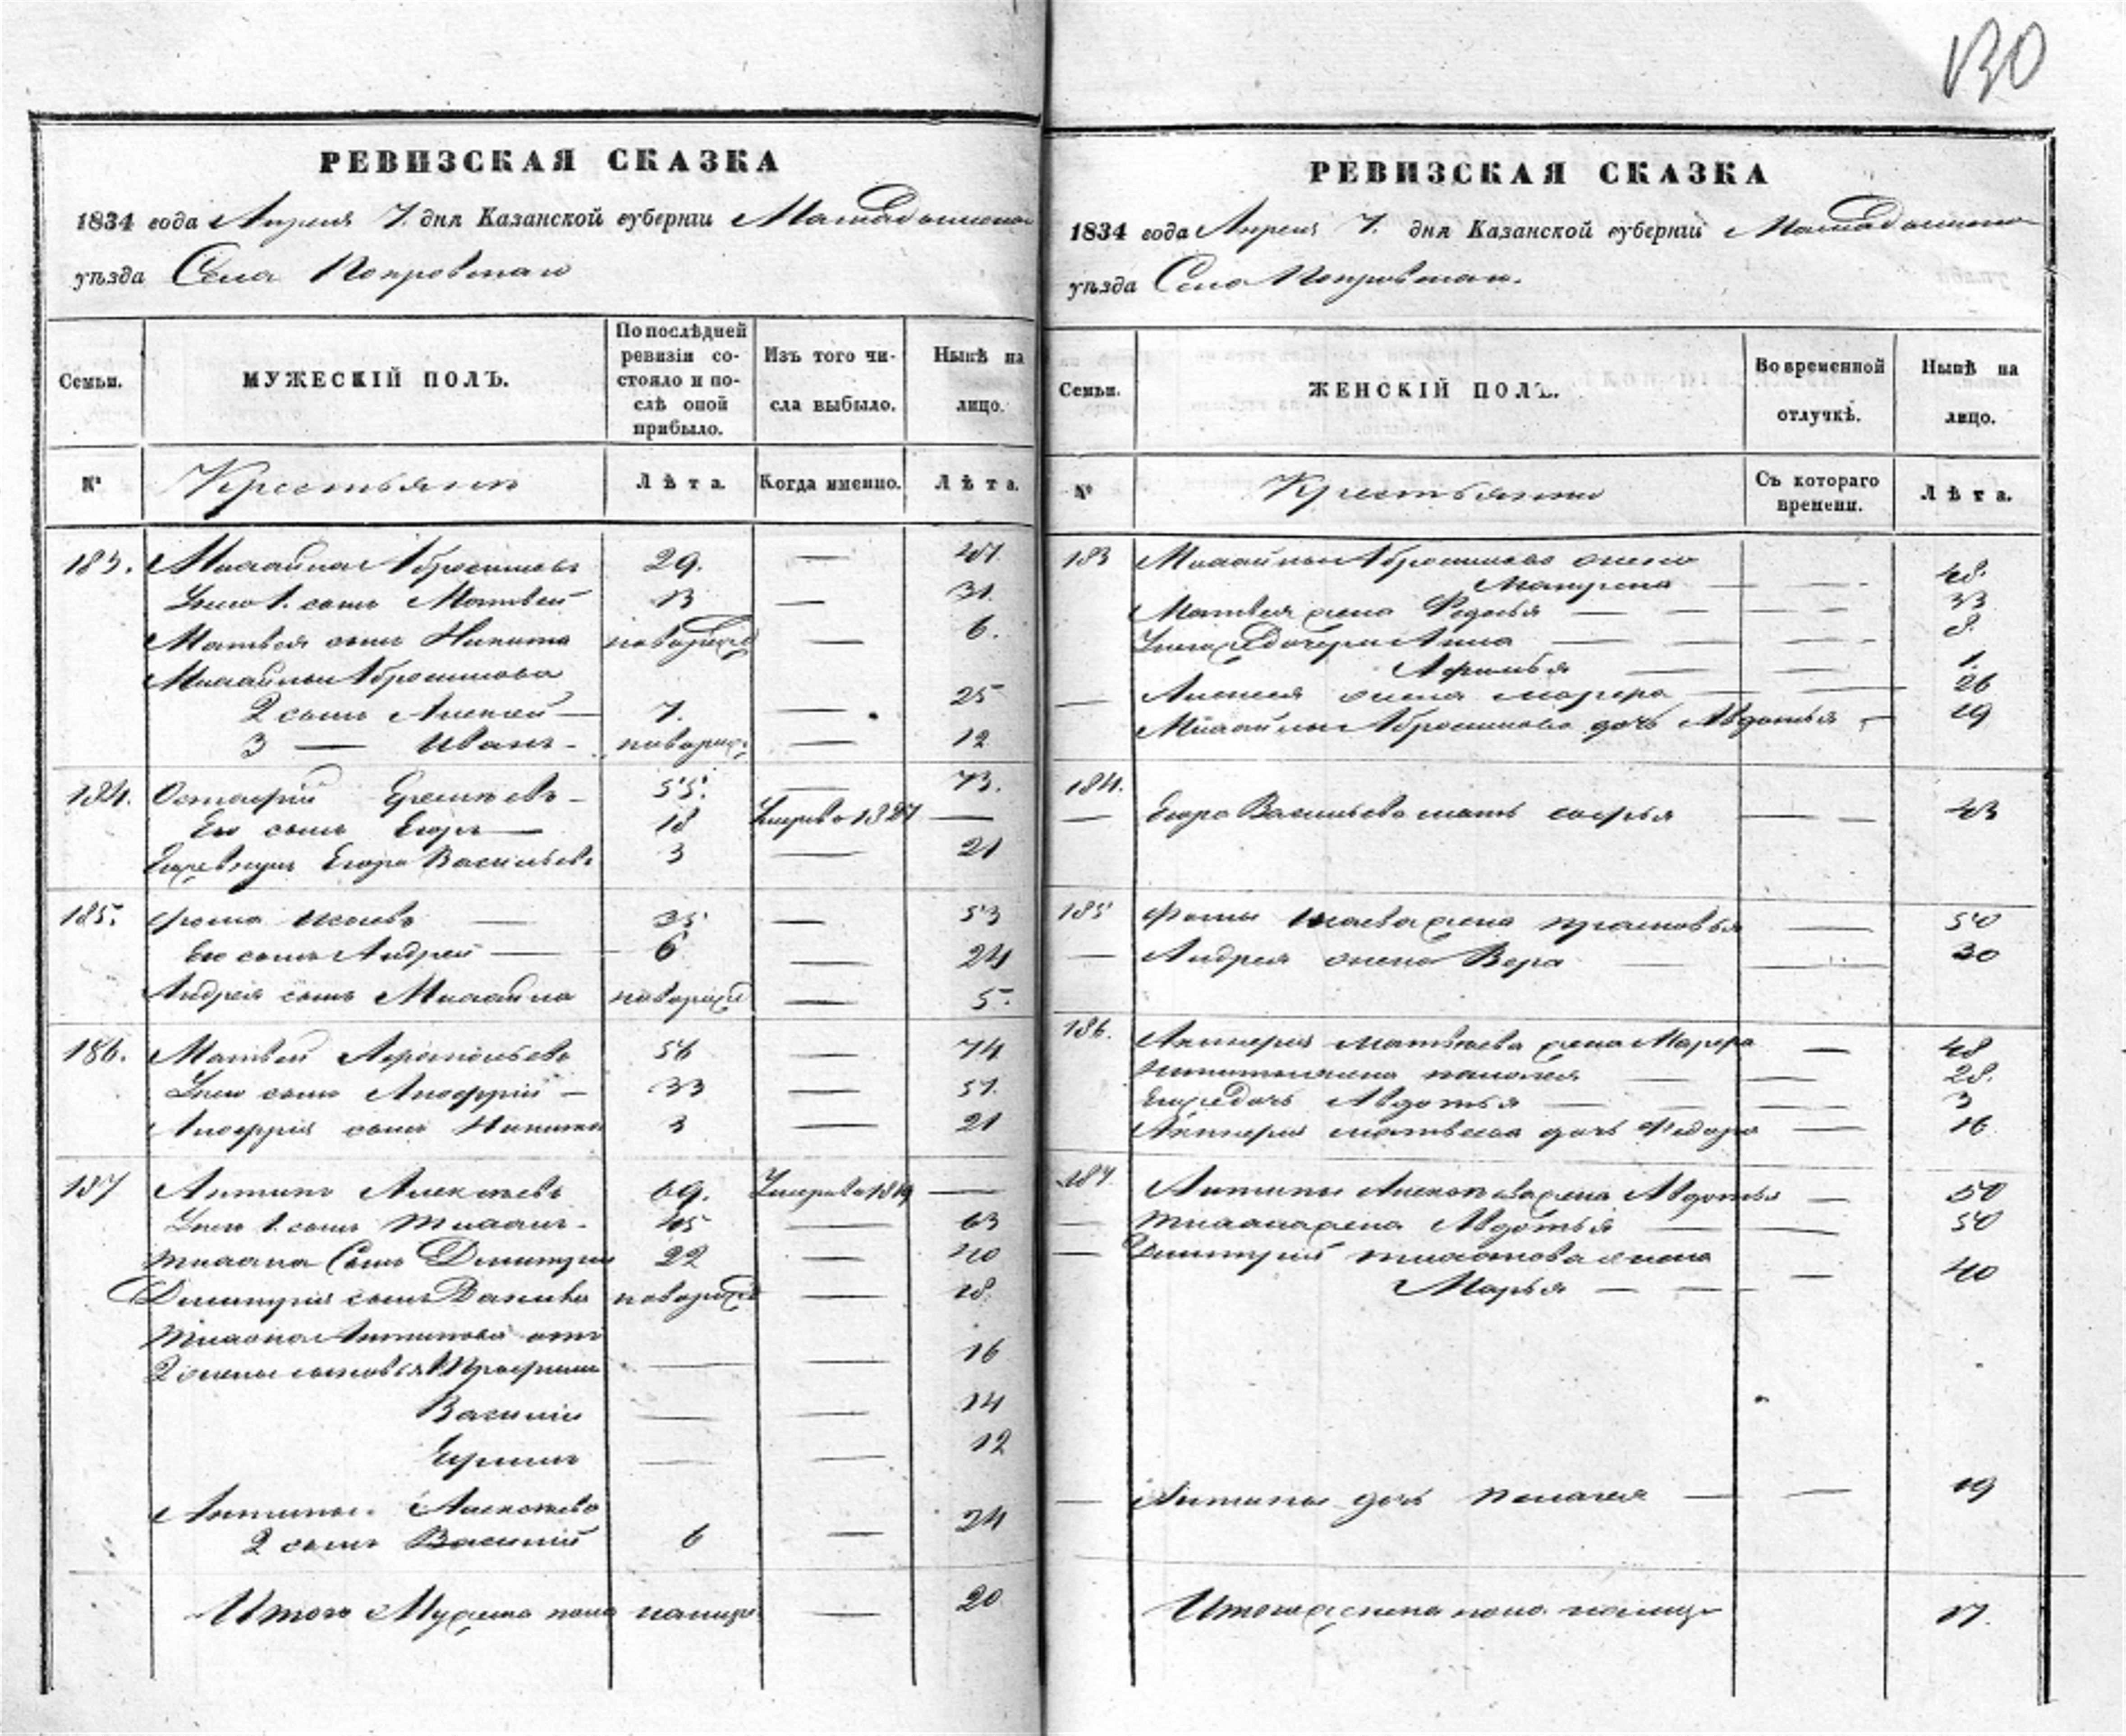 130
РЕВИЗСКАЯ СКАЗКА
1834 года Апреля 7. дня Казанской губерніи Мамадышскаго
уѣзда Села Покровскаго
Семьи.
МУЖЕСКІЙ ПОЛЪ.
По послѣдней
ревизіи со-
стояло и по-
слѣ оной
прибыло.
Изъ того чи-
сла выбыло.
Нынѣ на
лицо.
№
Крестьяне
Лѣта.
Когда именно.
Лѣта.
183. Михайла Абросимовъ 29. — 47
Его 1. сынъ Матвей 13 — 31.
Матвея сынъ Никита новорож — 6.
Михайлы Абросимова
2 сынъ Алексей — 7. — 25
3 — Иванъ — новорож. — 12
184. Остафій Еремѣевъ — 55. — 73.
Его сынъ Егоръ — 18 Умеръ в 1827 —
Егора Васильевъ 3 — 21
185. Фома Исаевъ — 35 — 53
Его сынъ Андрей — 6 — 24
Андрея сынъ Михайла новорож — 5.
186. Матвей 56 — 74
Его сынъ — 33 — 51.
сынъ Никита 3 — 21
187 Антипъ Алексѣевъ 69. Умеръ в 1819 —
Его 1. сынъ 45 — 63
Сынъ Дмитрій 22 — 40
Дмитрія сынъ Данила новорож — 18.
Антипова отъ
2 жены сыновья — — 16
Василій — — 14
Ефимъ — — 12
Антипы Алексѣева
2 сынъ Василій 6 — 24
Итого Мужеска пола налицо — 20
РЕВИЗСКАЯ СКАЗКА
1834 года Апреля 7. дня Казанской губерніи Мамадышскаго
уѣзда Села Покровскаго.
Семьи.
ЖЕНСКІЙ ПОЛЪ.
Во временной
отлучкѣ.
Нынѣ на
лицо.
№
Крестьянки
Съ котораго
времени.
Лѣта.
183 Михайлы Абросимова жена
Матрена — — 48.
Матвея жена Федосья — — 33
Его дочери Анна — — 8.
— — 1.
— Алексея жена — — 26
Михайлы Абросимова дочь Авдотья — 19
184.
— Егора Васильева мать Софья — 43
185 Фомы Исаева жена Прасковья — 50
— Андрея жена Вера — 30
186. Матвѣева жена — 48
жена — — 28.
Его дочь Авдотья — — 3
Матвеева дочь Федора — 16
187. Антипы Алексѣева жена Авдотья — 50
— жена Авдотья — — 50
— Дмитрій жена
Марья — — 40
— Антипы дочь Пелагея — — 19
Итого женска пола налицо 17.